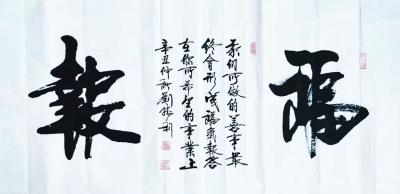 福
我们所做的善事最
终会形成福氣報答
在你所希望的事業上
辛丑仲秋劉利
報